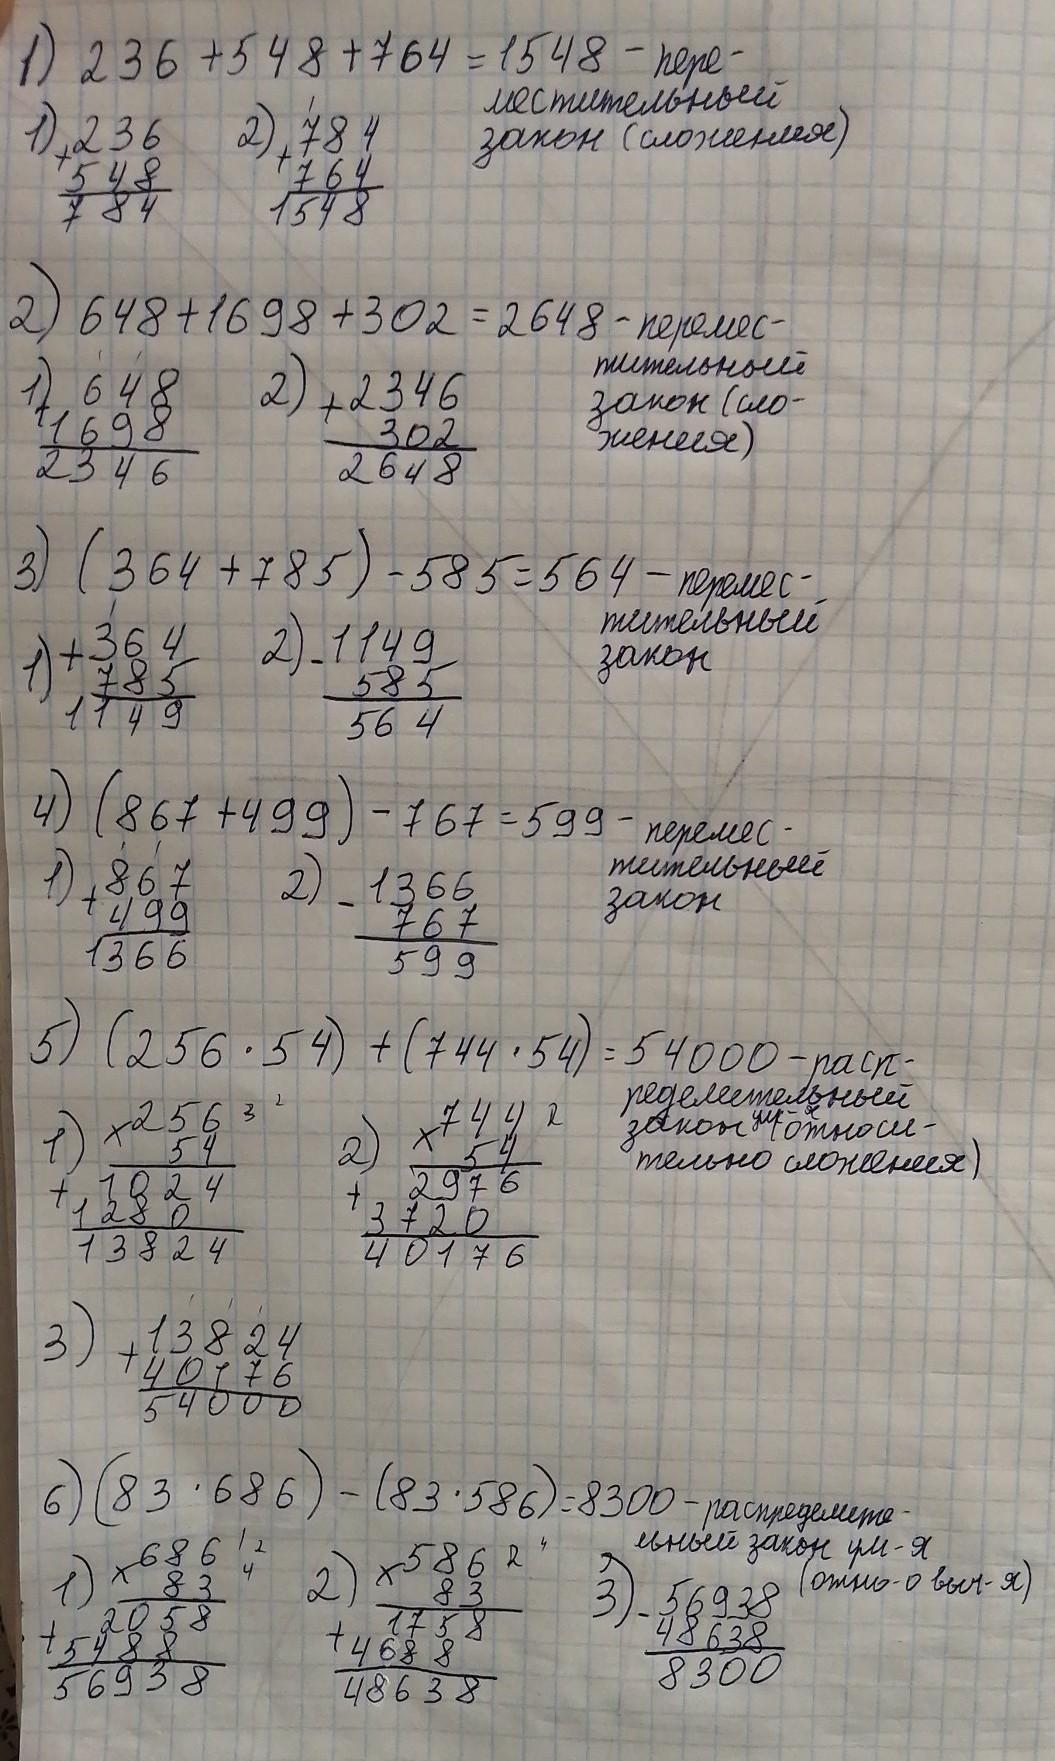 1) 236 + 548 + 764 = 1548 - пере-
местительный
закон (сложения)
1) + 236
548
784
2) + 784
764
1548
2) 648 + 1698 + 302 = 2648 - перемес-
тительный
закон (сло-
жения)
1) + 648
1698
2346
2) + 2346
302
2648
3) (364 + 785) - 585 = 564 - перемес-
тительный
закон
1) + 364
785
1149
2) - 1149
585
564
4) (867 + 499) - 767 = 599 - перемес-
тительный
закон
1) + 867
499
1366
2) - 1366
767
599
5) (256 · 54) + (744 · 54) = 54000 - расп-
ределительный
закон ум-я (относи-
тельно сложения)
1) x 256 3 2
54
+ 1024
1280
13824
2) x 744 2
54
+ 2976
3720
40176
3) + 13824
40176
54000
6) (83 · 686) - (83 · 586) = 8300 - распределите-
льный закон ум-я
(отно-о выч-я)
1) x 686 1 2
83 4
+ 2058
5488
56938
2) x 586 2 4
83
+ 1758
4688
48638
3) - 56938
48638
8300